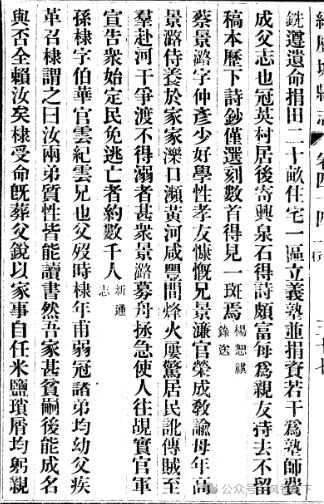 三十七
銑遵遺命捐田二十畝住宅一區立義塾並捐資若干為塾師費
成父志也冠英村居後寄興泉石得詩頗富每為親友持去不留
稿本歷下詩鈔僅選刻數首得見一斑焉 楊恕祺錄送
蔡景路字仲彥少好學性孝友慷慨兄景濂官榮成教諭母年高
景路侍養於家家濼口瀕黃河咸豐間烽火屢驚居民訛傳賊至
羣赴河干爭渡不得溺者甚衆景路募舟拯急使人往覘實官軍
宣告衆始定民免逃亡者約數千人 新通志
孫棣字伯華官雲紀雲兄也父歿時棣年甫弱冠諸弟均幼父疾
革召棣謂之曰汝兩弟質性皆能讀書然吾家甚貧嗣後能成名
與否全賴汝矣棣受命旣葬父銳以家事自任米鹽瑣屑均躬親
公众号